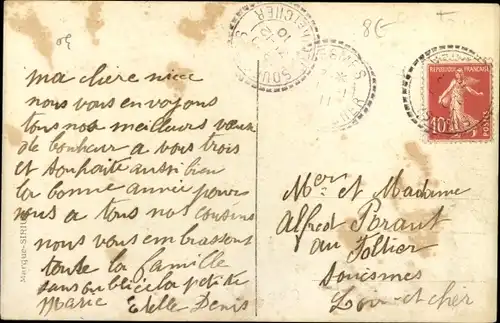 ma chère niece
nous vous envoyons
tous nos meilleurs vœux
de bonheur a vous trois
et souhaite aussi bien
la bonne année pour
vous a tous nos cousins
nous vous embrassons
toute la famille
sans oublié la petite
Marie Estelle Denis
8€
RÉPUBLIQUE FRANÇAISE
10
POSTES
Mer et Madame
Alfred Braut
au
Souesmes
Loir-et-cher
Marque-SIRIUS